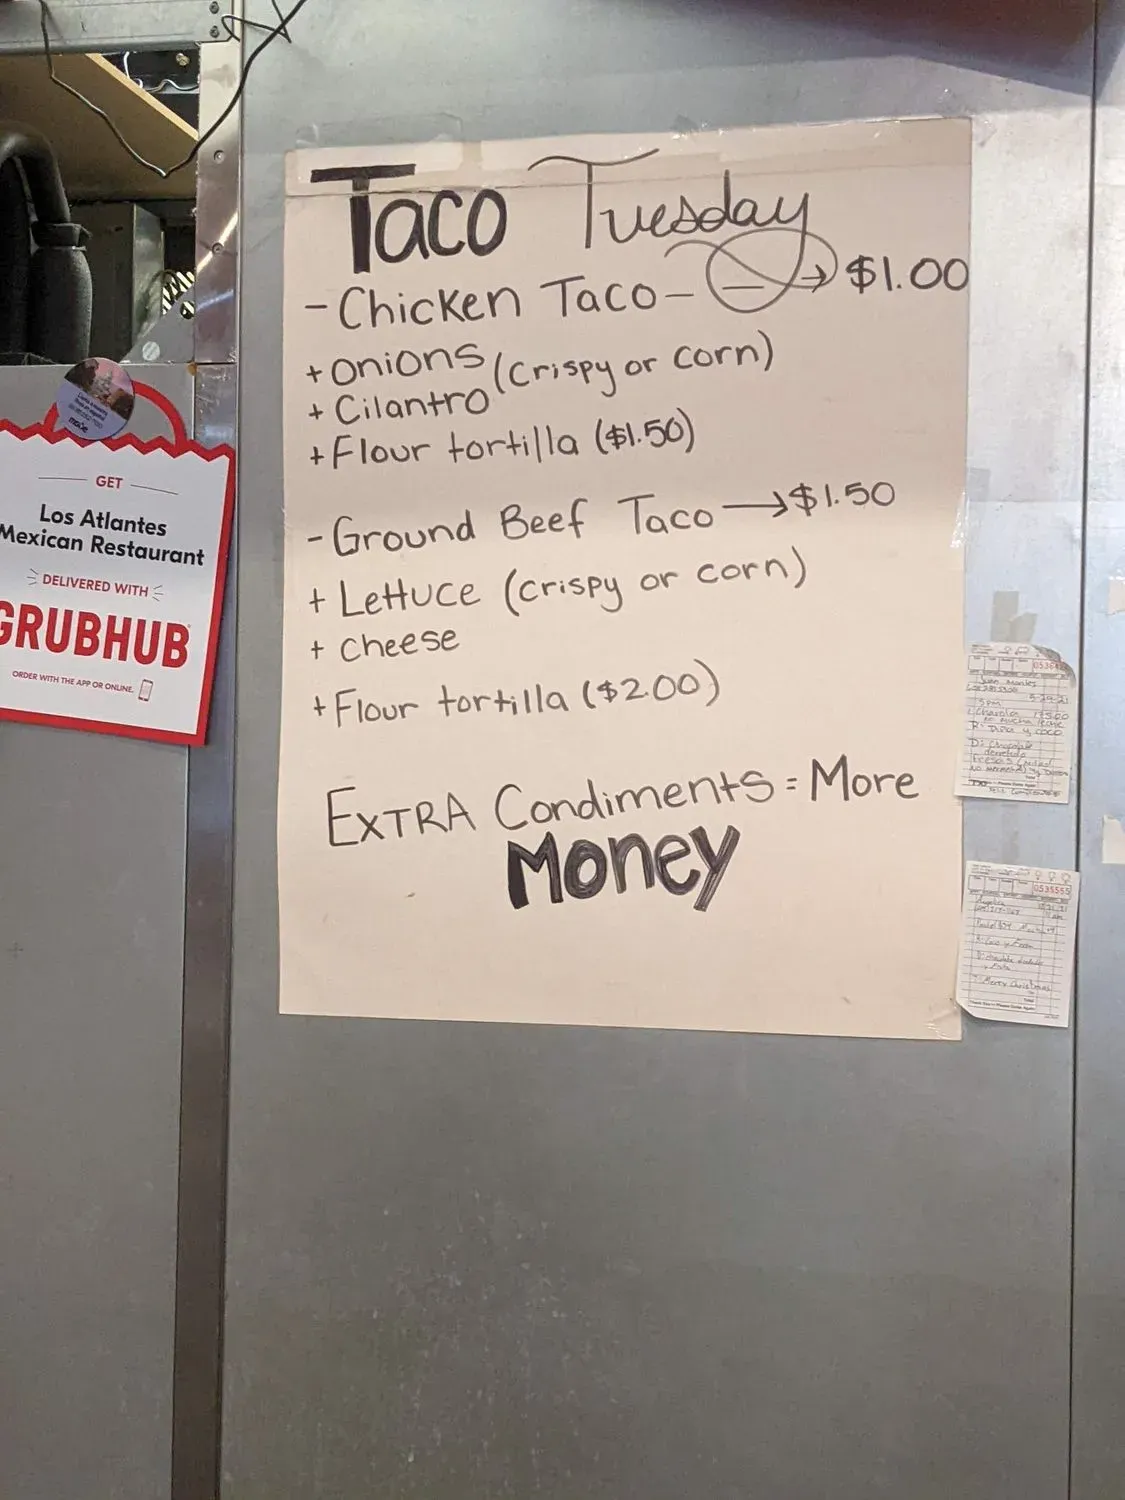 Taco Tuesday
- Chicken Taco - — → $1.00
+ Onions (crispy or corn)
+ Cilantro
+ Flour tortilla ($1.50)
- Ground Beef Taco → $1.50
+ Lettuce (crispy or corn)
+ cheese
+ Flour tortilla ($2.00)
EXTRA Condiments = More
Money
GET
Los Atlantes
Mexican Restaurant
DELIVERED WITH
GRUBHUB
ORDER WITH THE APP OR ONLINE.
made
5pm
R: Piña y coco
0535555
Angelica
Merry Christmas
Total